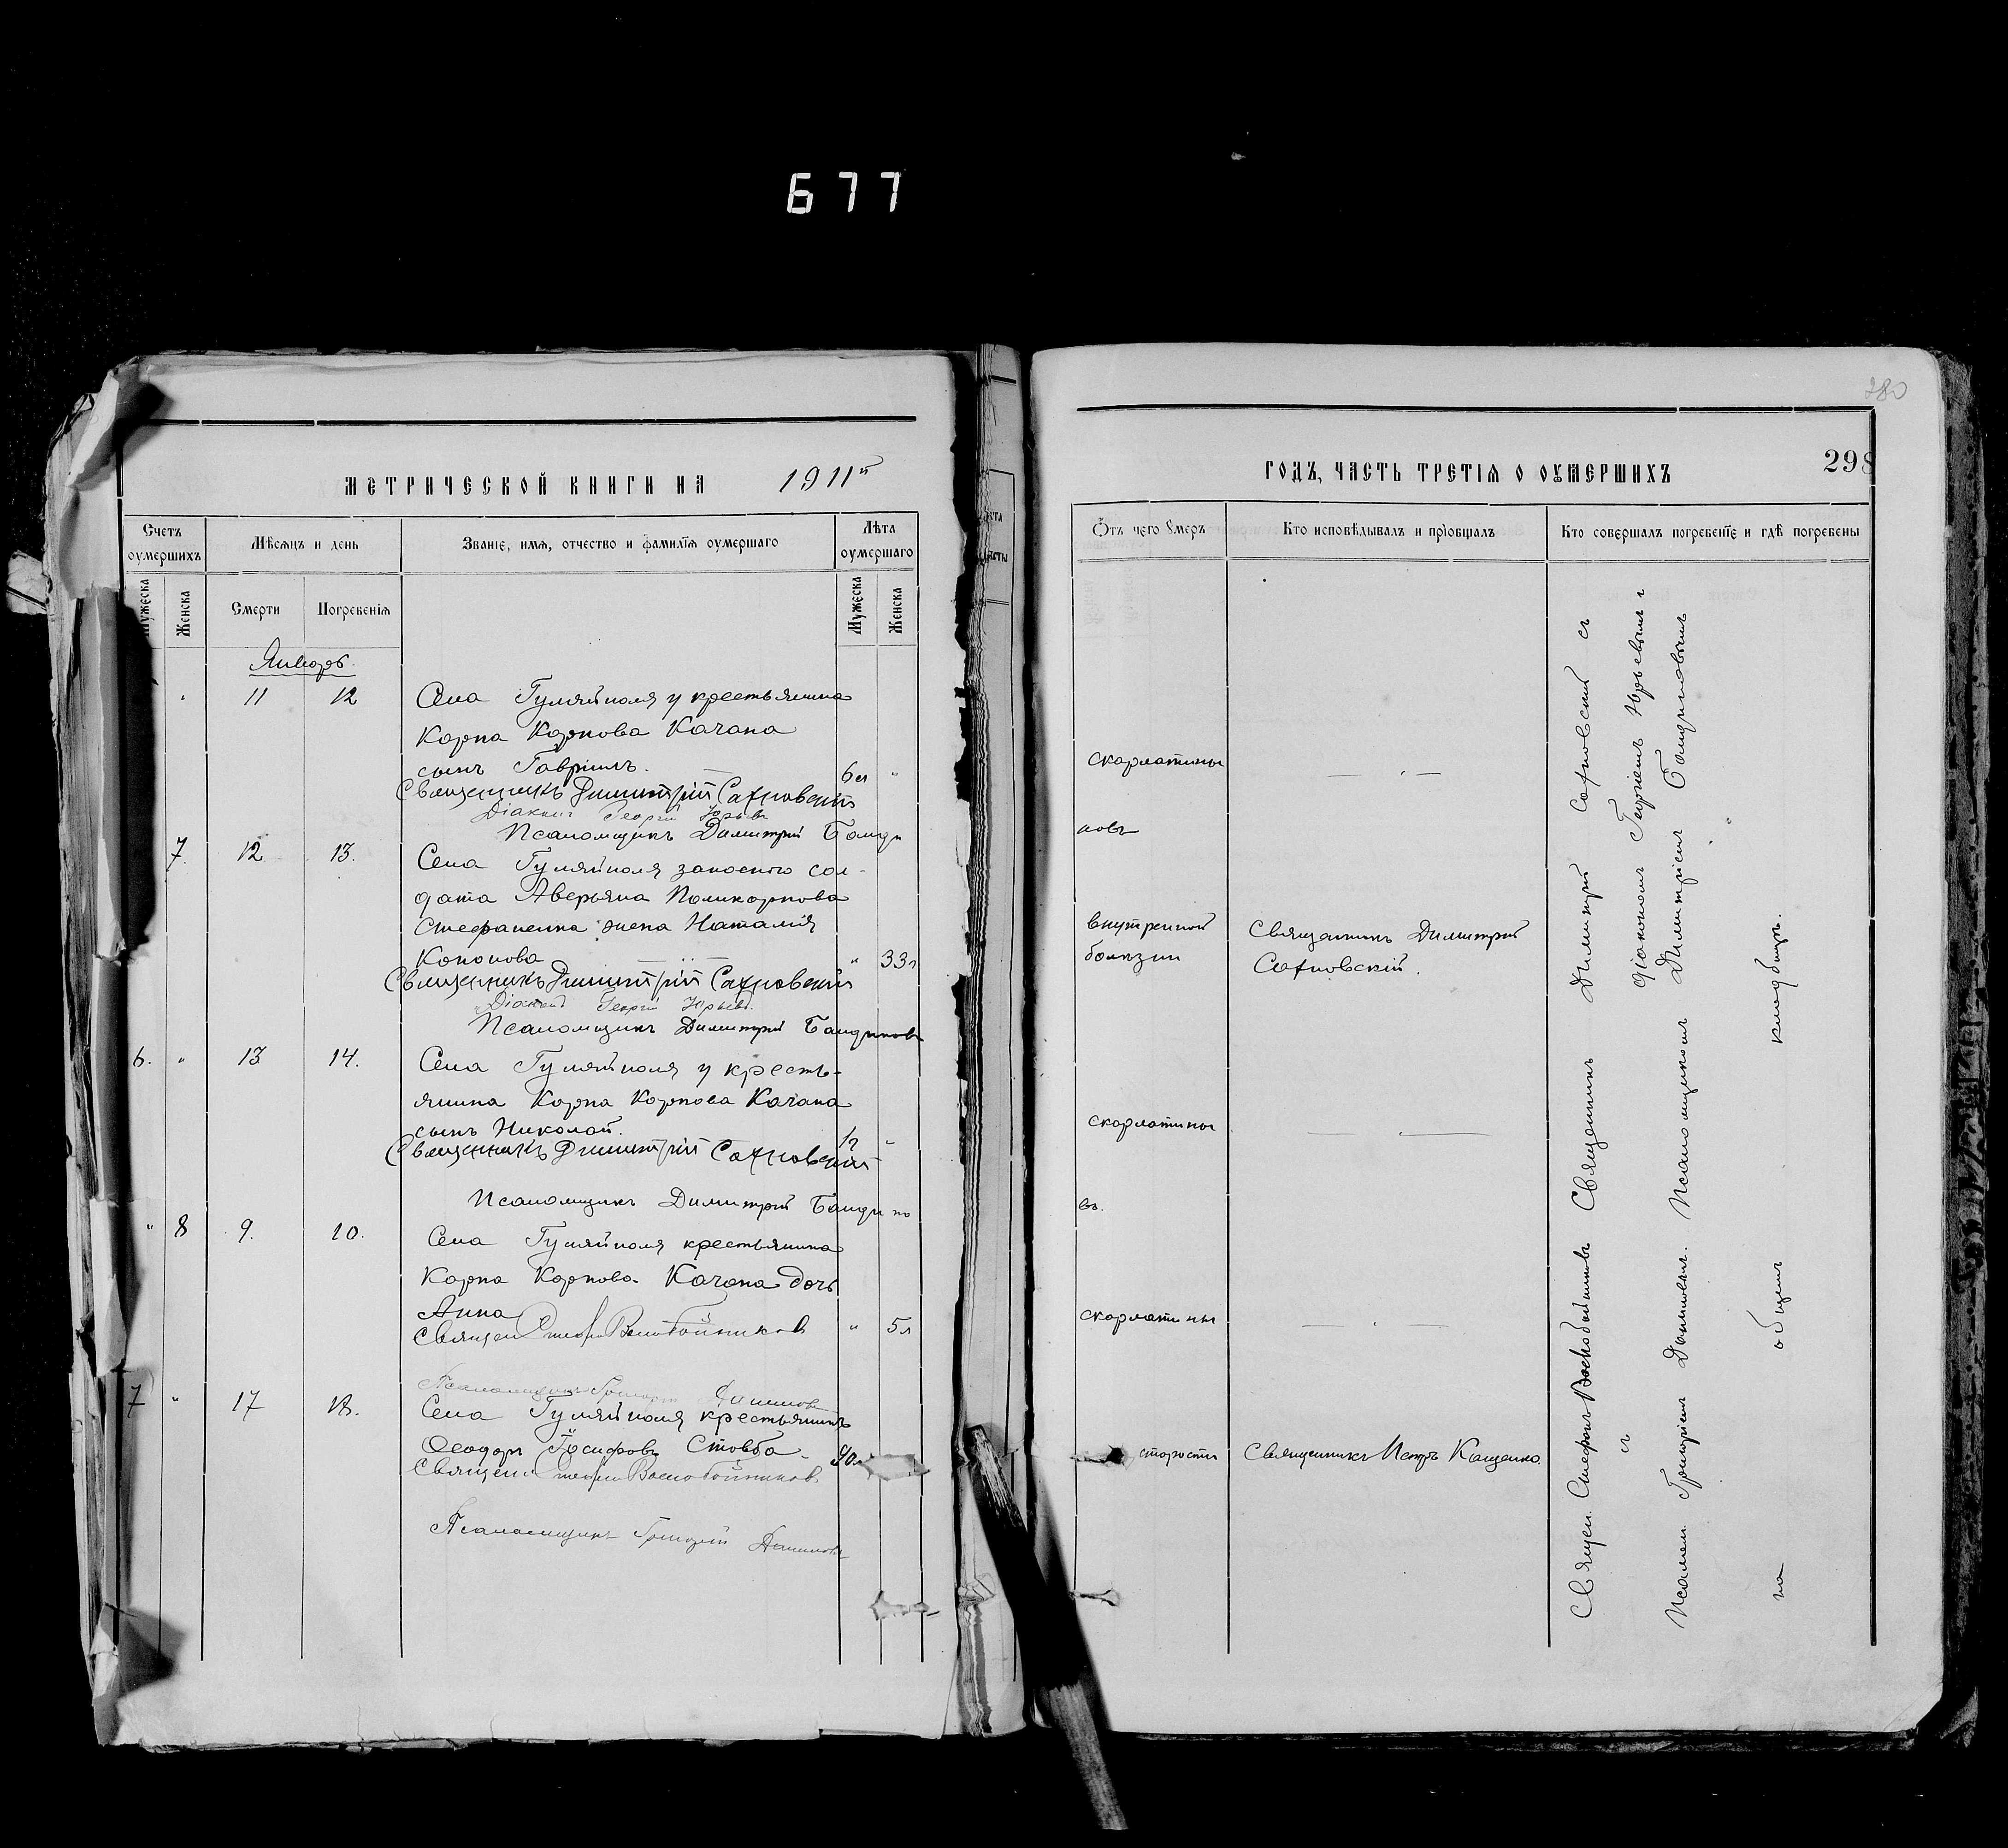 677
280
МЕТРИЧЕСКОЙ КНИГИ НА 1911й
ГОДЪ, ЧАСТЬ ТРЕТІѦ О ОУМЕРШИХЪ
298
Счетъ оумершихъ
Мѣсѧцъ и день
Званіе, имѧ, отчество и фамиліѧ оумершаго
Лѣта оумершаго
Мужеска
Женска
Смерти
Погребеніѧ
Мужеска
Женска
Январь.
11 12 Села Гуляйполя у крестьянина
Карпа Карпова Качана
сынъ Гавріилъ. 6 л "
Священникъ Димитрій Сахновскій
Діаконъ Георгій Юрьевъ
Псаломщикъ Димитрій Банди
7. 12 13. Села Гуляйполя запасного сол-
дата Аверьяна Поликарпова
Стефаненка жена Наталія
Кононова " 33 л
Священникъ Димитрій Сахновскій
Діаконъ Георгій Юрьевъ.
Псаломщикъ Димитрій Бандиновъ
6. " 13 14. Села Гуляйполя у кресть-
янина Карпа Карпова Качана
сынъ Николай. "
Священникъ Димитрій Сахновскій
Псаломщикъ Димитрій Бандино
" 8 9. 10. Села Гуляйполя крестьянина
Карпа Карпова Качана дочь
Анна " 5 л
Священ Воскобойниковъ
Псаломщикъ Григорій
7 " 17 18. Села Гуляйполя крестьянинъ
Ѳеодоръ Іосифовъ Стовба 90
Священ Воскобойниковъ
Псаломщикъ Григорій
Ѿъ чего оумеръ
Кто исповѣдывалъ и пріобщалъ
Кто совершалъ погребеніе и гдѣ погребены
скарлатины
новъ
внутренной
болезни
Священникъ Димитрій
Сахновскій.
скарлатины
въ.
скарлатины
старости
Священникъ Петръ Кащенко.
Священ. Стефанъ Воскобойниковъ Священникъ Димитрій Сахновскій съ
съ діакономъ Георгіемъ Юрьевымъ и
Псалом. Григоріемъ Псаломщикомъ Димитріемъ Бандиновымъ
на общемъ кладбищѣ.